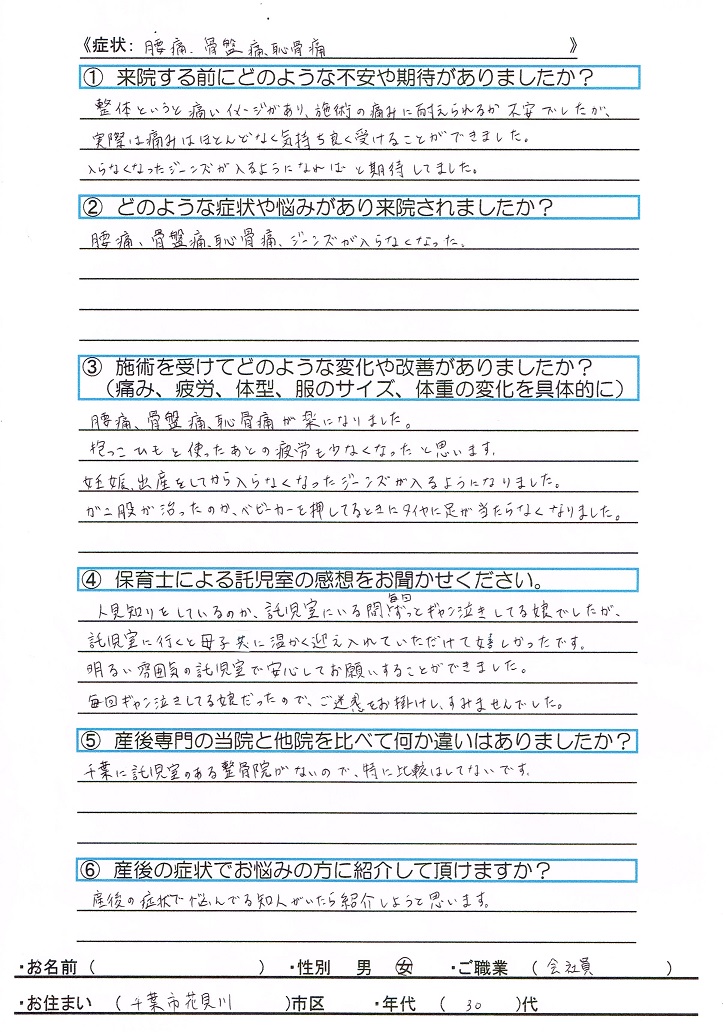 《症状: 腰痛、骨盤痛、恥骨痛 》
① 来院する前にどのような不安や期待がありましたか？
整体というと痛いイメージがあり、施術の痛みに耐えられるか不安でしたが、
実際は痛みはほとんどなく気持ち良く受けることができました。
入らなくなったジーンズが入るようになればと期待してました。
② どのような症状や悩みがあり来院されましたか？
腰痛、骨盤痛、恥骨痛、ジーンズが入らなくなった。
③ 施術を受けてどのような変化や改善がありましたか？
（痛み、疲労、体型、服のサイズ、体重の変化を具体的に）
腰痛、骨盤痛、恥骨痛が楽になりました。
抱っこひもを使ったあとの疲労も少なくなったと思います。
妊娠、出産をしてから入らなくなったジーンズが入るようになりました。
がに股が治ったのか、ベビーカーを押してるときにタイヤに足が当たらなくなりました。
④ 保育士による託児室の感想をお聞かせください。
人見知りをしているのか、託児室にいる間毎回ずっとギャン泣きしてる娘でしたが、
託児室に行くと母子共に温かく迎え入れていただけて嬉しかったです。
明るい雰囲気の託児室で安心してお願いすることができました。
毎回ギャン泣きしてる娘だったので、ご迷惑をお掛けし、すみませんでした。
⑤ 産後専門の当院と他院を比べて何か違いはありましたか？
千葉に託児室のある整骨院がないので、特に比較はしてないです。
⑥ 産後の症状でお悩みの方に紹介して頂けますか？
産後の症状で悩んでる知人がいたら紹介しようと思います。
・お名前（ ） ・性別 男 女 ・ご職業 （ 会社員 ）
・お住まい （ 千葉市花見川 ）市区 ・年代 （ 30 ）代